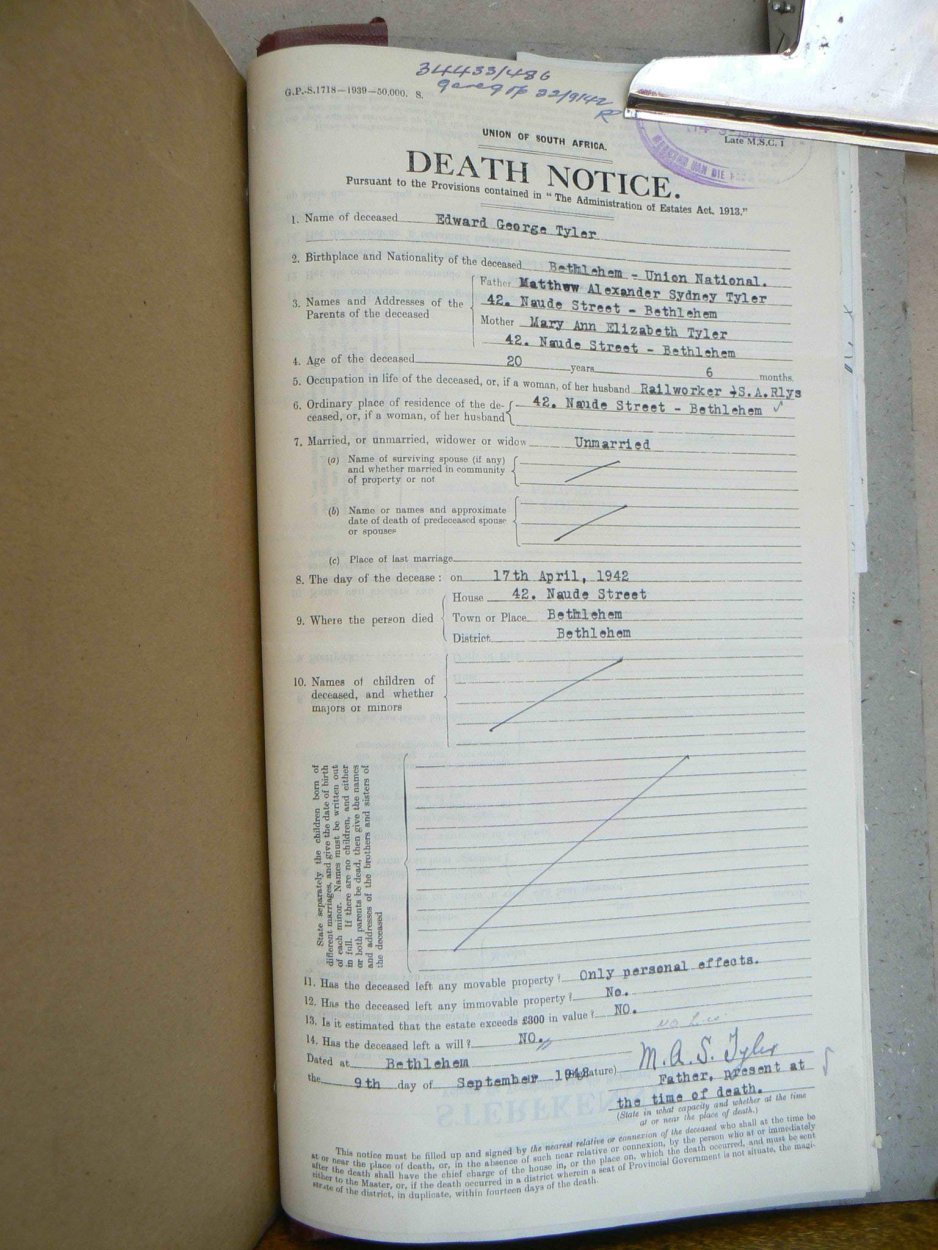 34433/486
G.P.-S.1718—1939—50,000. S.
22/9/42
Late M.S.C. 1
UNION OF SOUTH AFRICA.
DEATH NOTICE.
Pursuant to the Provisions contained in "The Administration of Estates Act, 1913."
1. Name of deceased Edward George Tyler
2. Birthplace and Nationality of the deceased Bethlehem - Union National.
3. Names and Addresses of the Parents of the deceased
Father Matthew Alexander Sydney Tyler
42. Naude Street - Bethlehem
Mother Mary Ann Elizabeth Tyler
42. Naude Street - Bethlehem
4. Age of the deceased 20 years 6 months.
5. Occupation in life of the deceased, or, if a woman, of her husband Railworker -S.A.Rlys
6. Ordinary place of residence of the de-
ceased, or, if a woman, of her husband 42. Naude Street - Bethlehem
7. Married, or unmarried, widower or widow Unmarried
(a) Name of surviving spouse (if any)
and whether married in community
of property or not
(b) Name or names and approximate
date of death of predeceased spouse
or spouses
(c) Place of last marriage
8. The day of the decease: on 17th April, 1942
9. Where the person died
House 42. Naude Street
Town or Place Bethlehem
District Bethlehem
10. Names of children of
deceased, and whether
majors or minors
State separately the children born of
different marriages, and give the date of birth
of each minor. Names must be written out
in full. If there are no children, and either
or both parents be dead, then give the names
and addresses of the brothers and sisters of
the deceased
11. Has the deceased left any movable property? Only personal effects.
12. Has the deceased left any immovable property? No.
13. Is it estimated that the estate exceeds £300 in value? NO.
14. Has the deceased left a will? NO.
Dated at Bethlehem
M.A.S. Tyler
the 9th day of September (Signature)
Father, present at
the time of death.
(State in what capacity and whether at the time
at or near the place of death.)
This notice must be filled up and signed by the nearest relative or connexion of the deceased who shall at the time be
at or near the place of death, or, in the absence of such near relative or connexion, by the person who at or immediately
after the death shall have the chief charge of the house in, or the place on, which the death occurred, and must be sent
either to the Master, or, if the death occurred in a district wherein a seat of Provincial Government is not situate, the magi-
strate of the district, in duplicate, within fourteen days of the death.